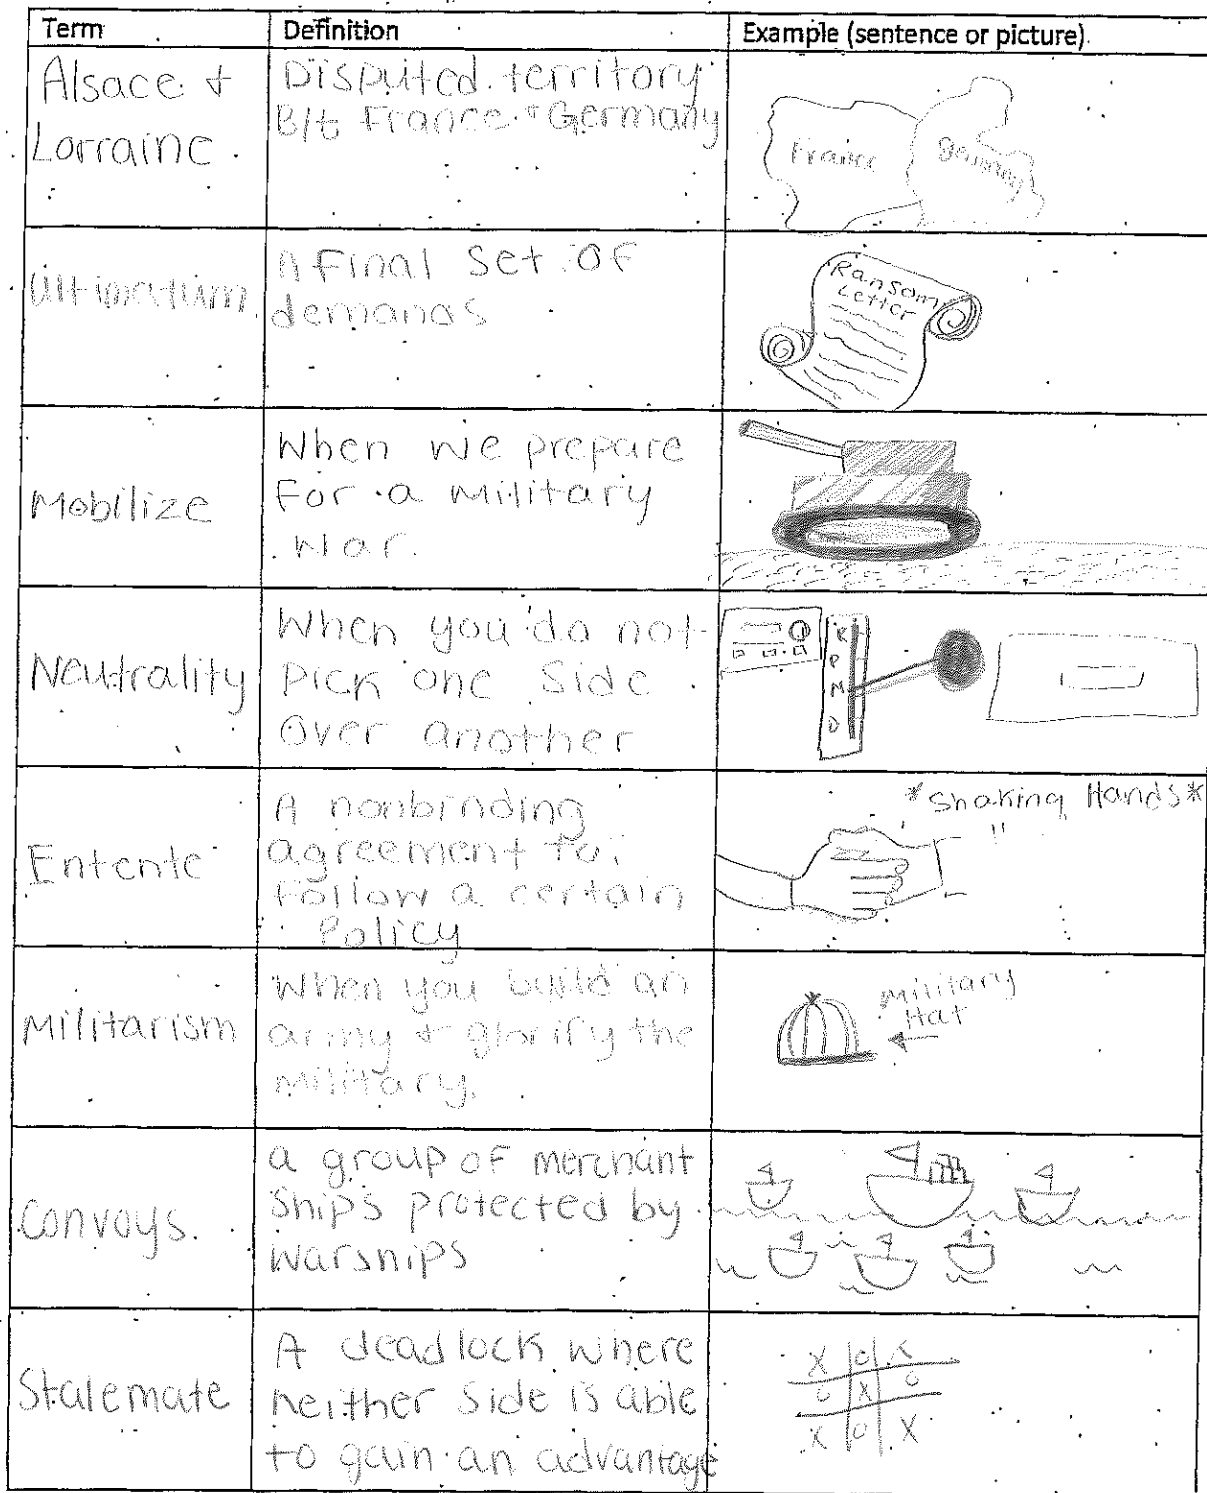 Term Definition Example (sentence or picture)
Alsace +
Lorraine
Disputed territory
B/t France + Germany
France Germany
Ultimatum
A Final Set OF
demands
Ransom
Letter
Mobilize
When we prepare
For a military
War.
Neutrality
When you do not
Pick one Side
Over another
R
P
M
D
Entente
A nonbinding
agreement to
Follow a certain
Policy
*Shaking Hands*
Militarism
When you build an
army + glorify the
military.
Military
Hat
Convoys.
a group of merchant
Ships protected by
Warships
Stalemate
A deadlock where
neither Side is able
to gain an advantage
X O X
O X O
X O X